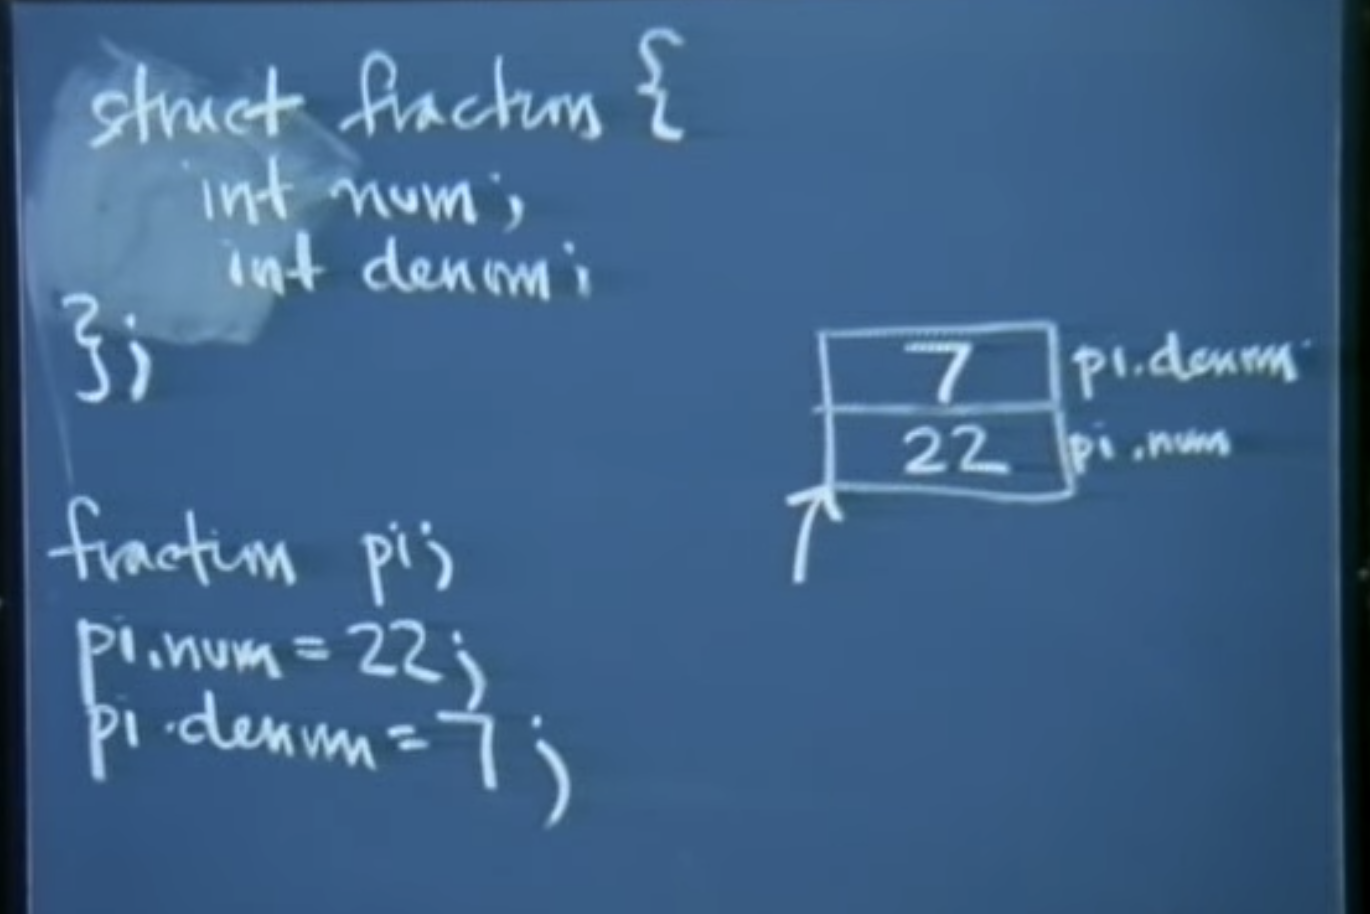 struct fraction {
int num;
int denom;
};
fraction pi;
pi.num = 22;
pi.denom = 7;
7 pi.denom
22 pi.num